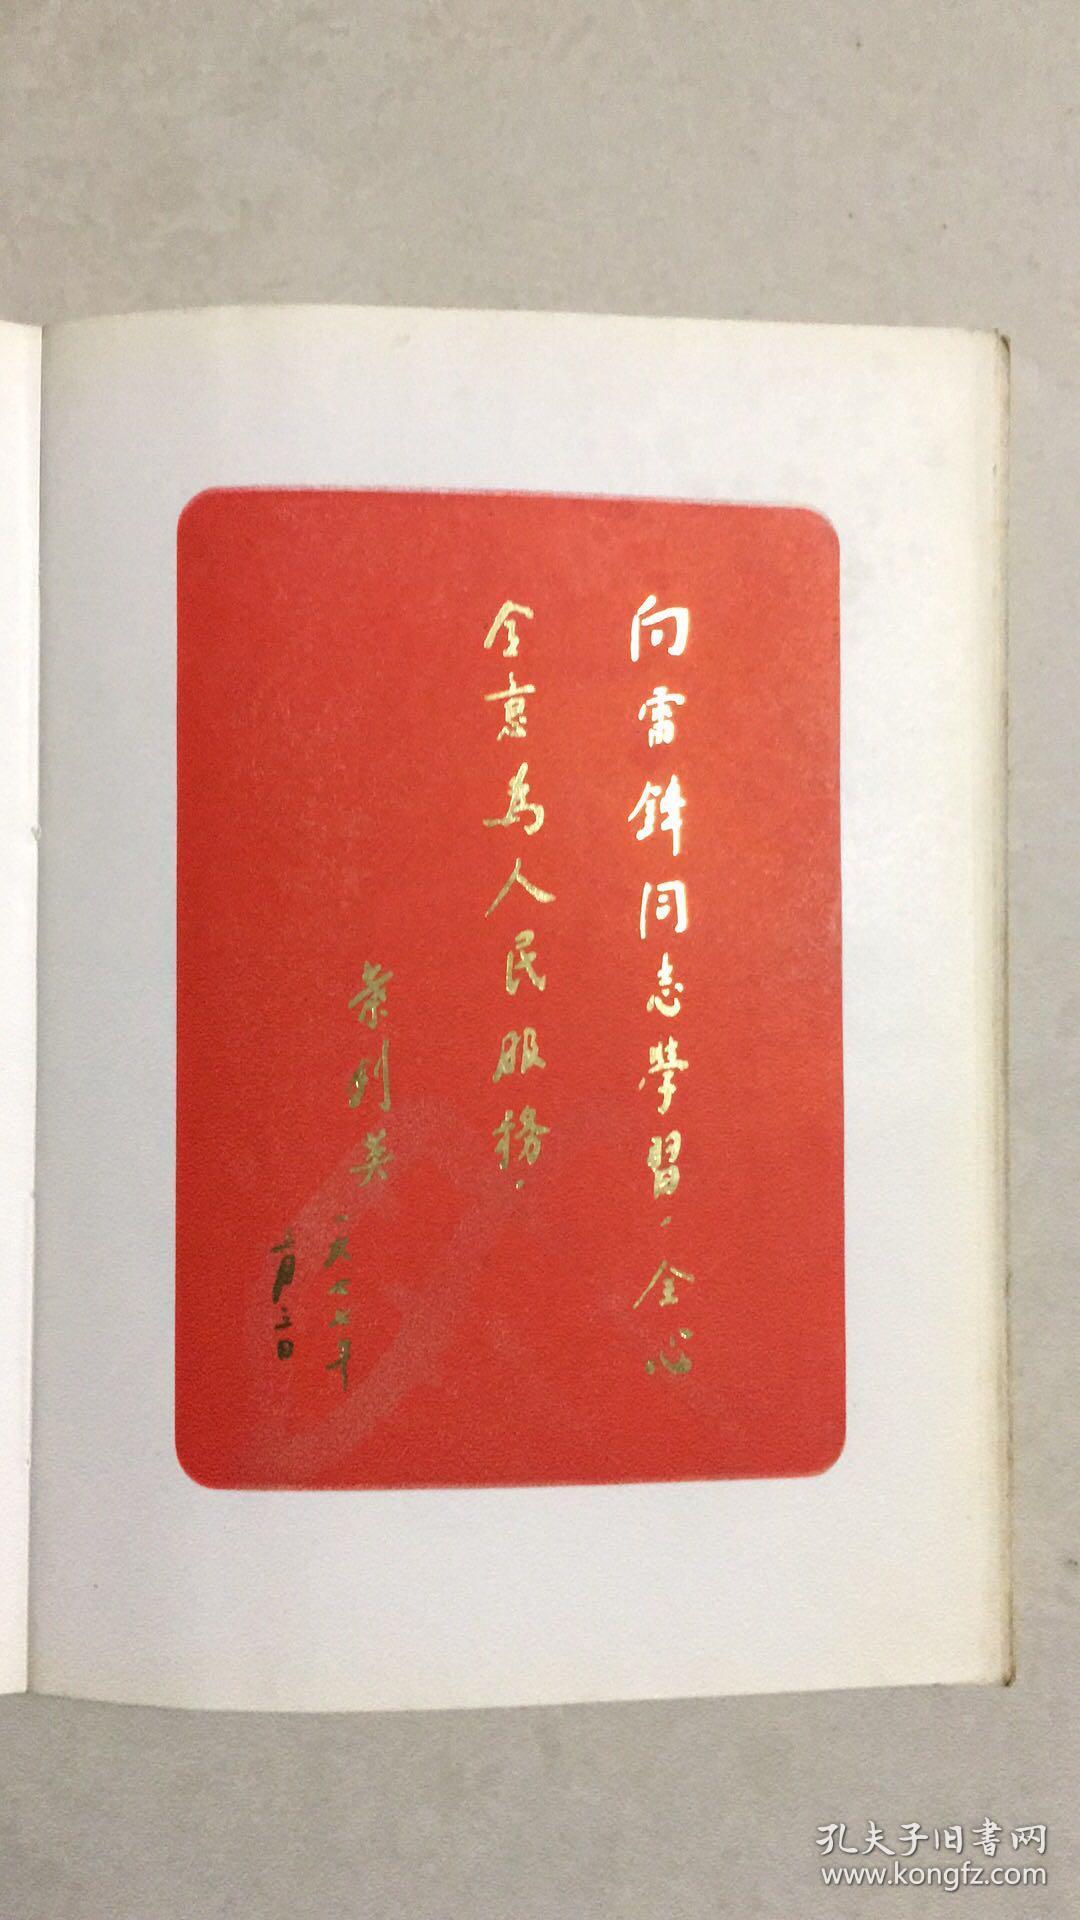 向雷鋒同志學習，全心
全意為人民服務，
葉剑英
一九七七年
二月三日
孔夫子旧書网
www.kongfz.com